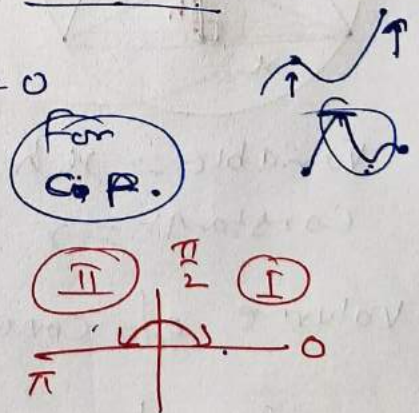 - 0
For
C.P.
II π/2 I
π 0